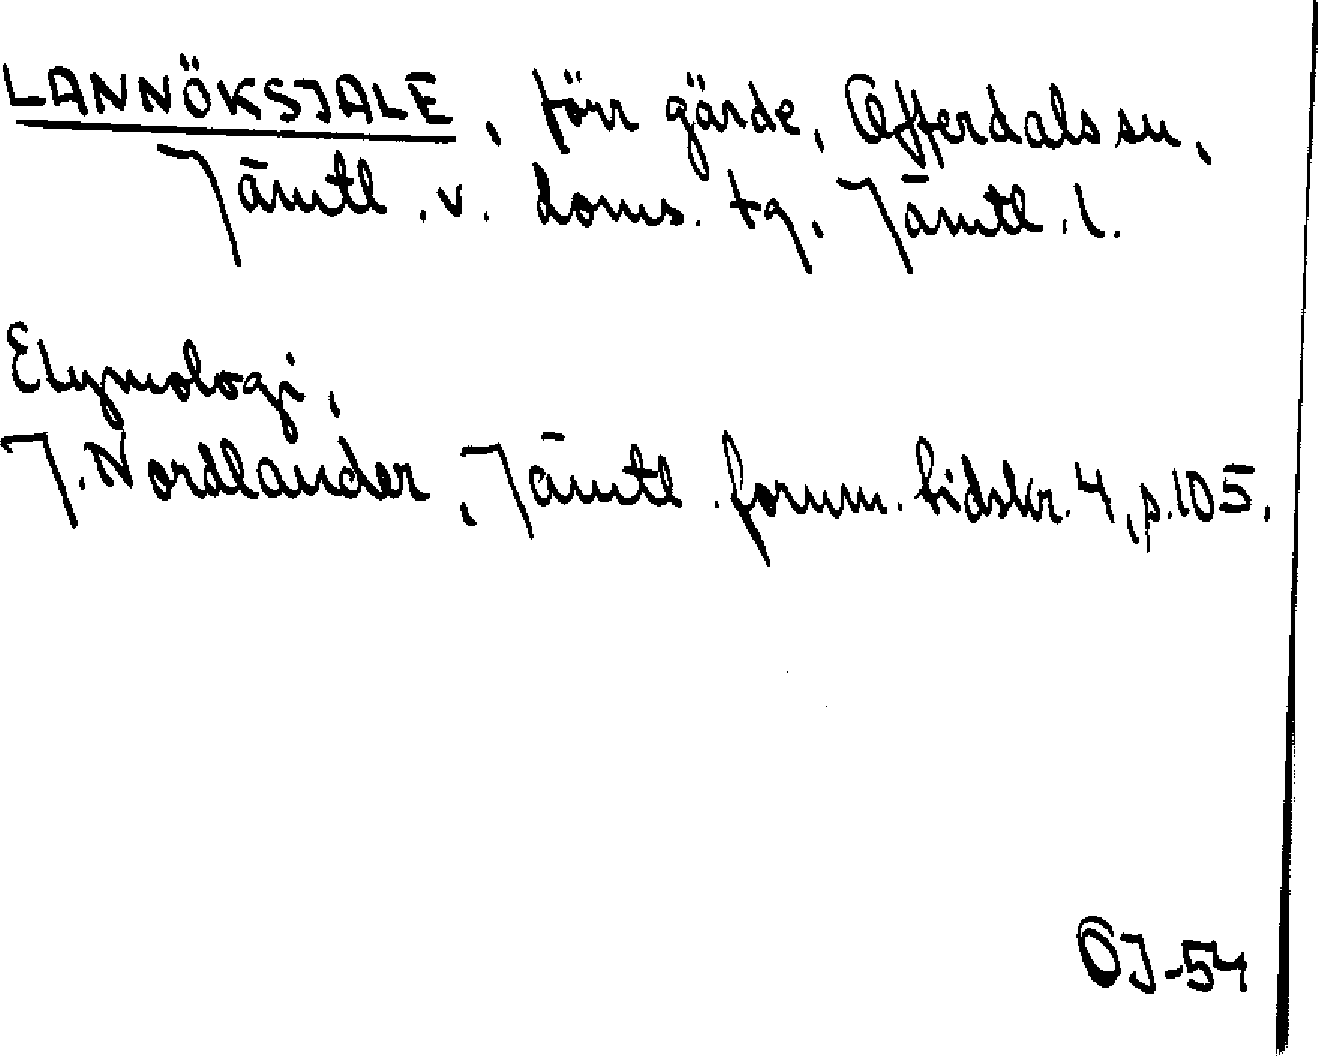 LANNÖKSJALE, förr gärde, Offerdals sn,
Jämtl. v. doms. tg, Jämtl. l.
Etymologi,
J. Nordlander, Jämtl. fornm. tidskr. 4, s. 105.
OJ-54